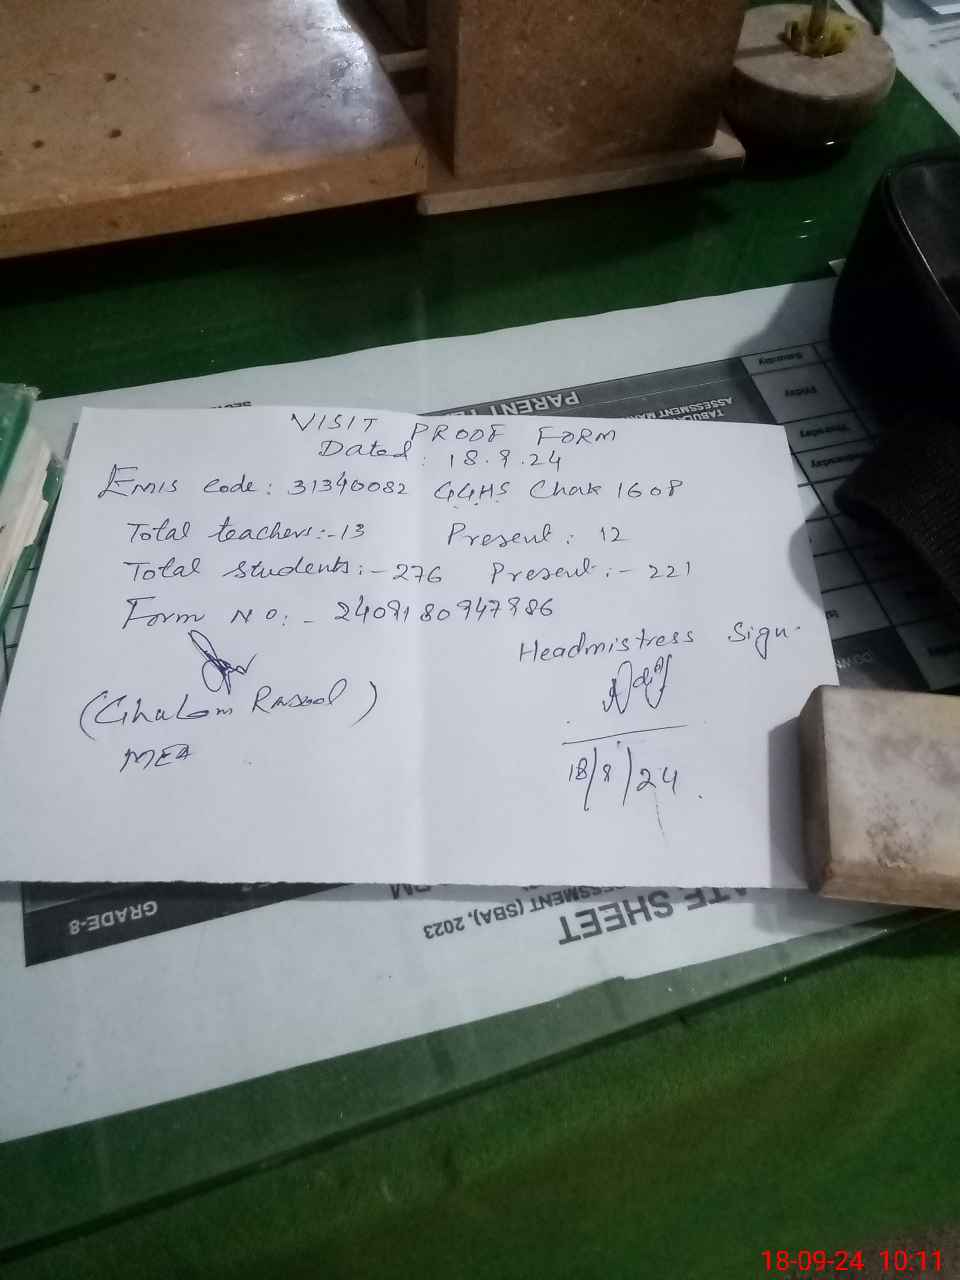 VISIT PROOF FORM
Dated: 18.9.24
Emis Code: 31340082 GGHS Chak 160P
Total teachers:-13 Present: 12
Total students:-276 Present:-221
Form No:-
Headmistress Sign.
(Ghulam Rasool)
MEA
18/9/24
PARENT
ASSESSMENT
Saturday
Friday
Thursday
GRADE-8
ESSMENT (SBA), 2023
ATE SHEET
18-09-24 10:11